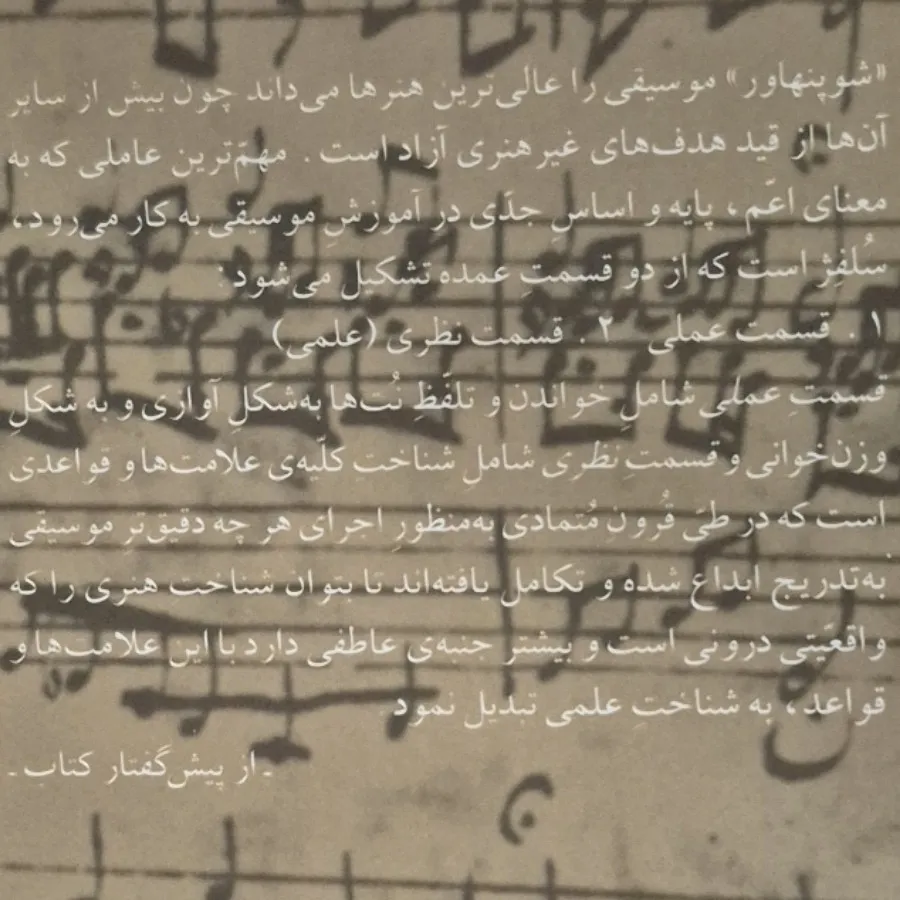 «شوپنهاور» موسیقی را عالی‌ترین هنرها می‌داند چون بیش از سایر
آن‌ها از قید هدف‌های غیرهنری آزاد است. مهمّ‌ترین عاملی که به
معنای اعّم، پایه و اساسِ جدّی در آموزشِ موسیقی به کار می‌رود،
سُلفِژ است که از دو قسمتِ عمده تشکیل می‌شود:
۱. قسمت عملی ۲. قسمت نظری (علمی)
قسمتِ عملی شاملِ خواندن و تلفّظِ نُت‌ها به‌شکلِ آوازی و به شکلِ
وزن‌خوانی و قسمتِ نظری شاملِ شناختِ کلّیه‌ی علامت‌ها و قواعدی
است که در طیّ قُرونِ مُتمادی به‌منظورِ اجرای هر چه دقیق‌ترِ موسیقی
به‌تدریج ابداع شده و تکامل یافته‌اند تا بتوان شناخت هنری را که
واقعیّتی درونی است و بیشتر جنبه‌ی عاطفی دارد با این علامت‌ها و
قواعد، به شناختِ علمی تبدیل نمود
ـ از پیش‌گفتار کتاب ـ